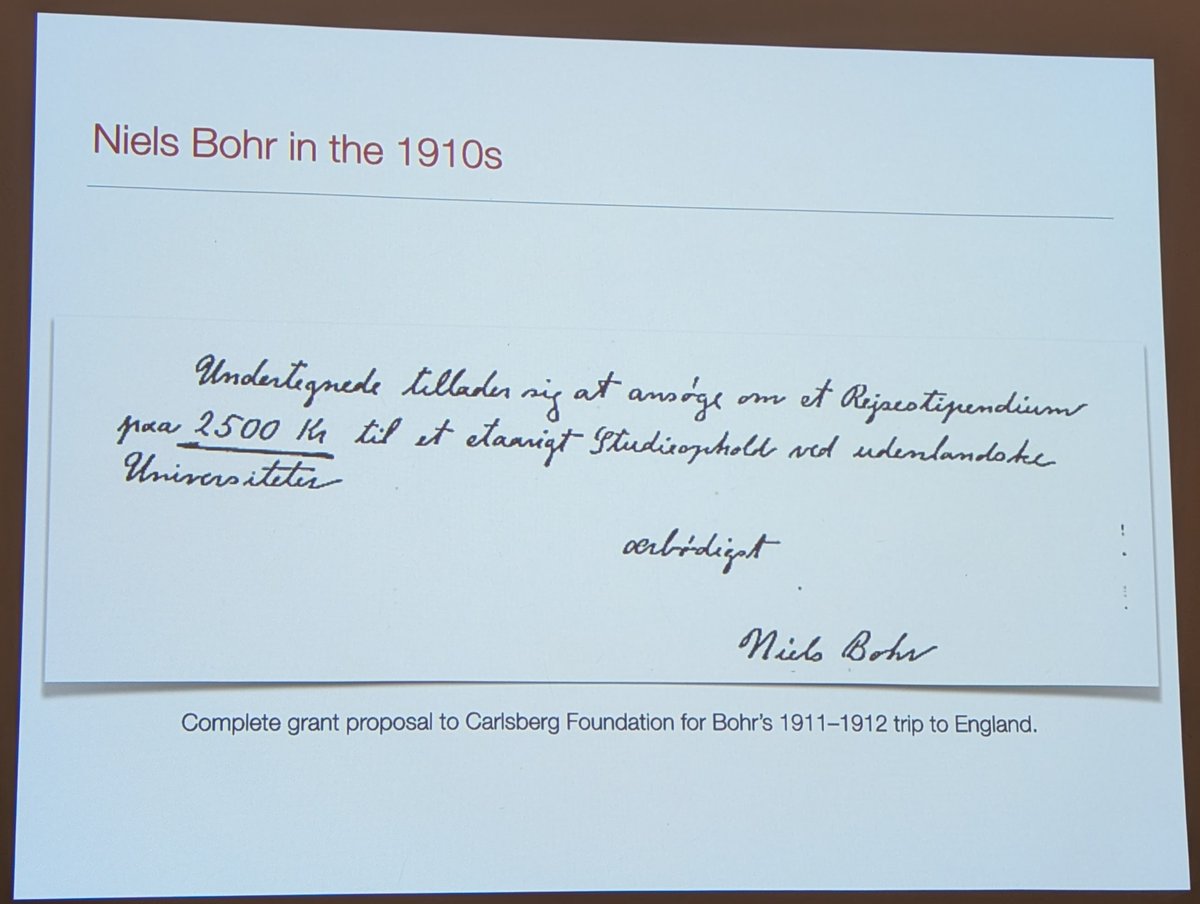 Niels Bohr in the 1910s
Undertegnede tillader sig at ansøge om et Rejsestipendium
paa 2500 Kr til et etaarigt Studieophold ved udenlandske
Universiteter
ærbødigst
Niels Bohr
Complete grant proposal to Carlsberg Foundation for Bohr's 1911–1912 trip to England.